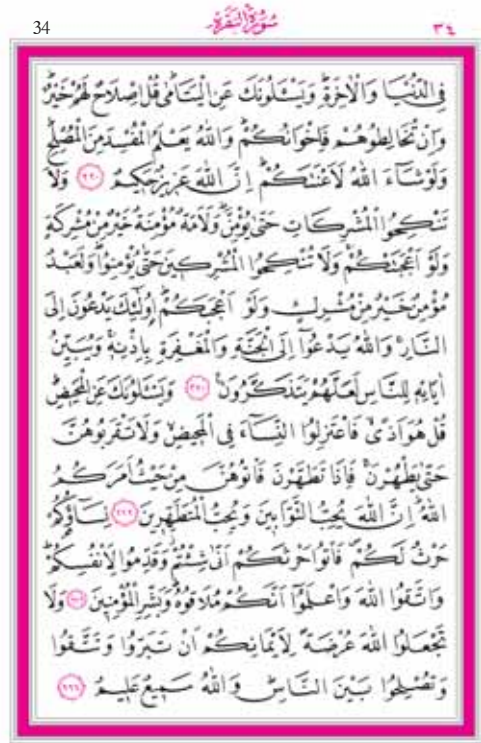 34 سُورَةُ الْبَقَرَةِ ٣٤
فِى الدُّنْيَا وَالْاٰخِرَةِ وَيَسْـَٔلُونَكَ عَنِ الْيَتَامٰى قُلْ اِصْلَاحٌ لَهُمْ خَيْرٌ
وَاِنْ تُخَالِطُوهُمْ فَاِخْوَانُكُمْ وَاللّٰهُ يَعْلَمُ الْمُفْسِدَ مِنَ الْمُصْلِحِ
وَلَوْ شَٓاءَ اللّٰهُ لَاَعْنَتَكُمْ اِنَّ اللّٰهَ عَزِيزٌ حَكِيمٌ ﴿٢٢٠﴾ وَلَا
تَنْكِحُوا الْمُشْرِكَاتِ حَتّٰى يُؤْمِنَّ وَلَاَمَةٌ مُؤْمِنَةٌ خَيْرٌ مِنْ مُشْرِكَةٍ
وَلَوْ اَعْجَبَتْكُمْ وَلَا تُنْكِحُوا الْمُشْرِكِينَ حَتّٰى يُؤْمِنُوا وَلَعَبْدٌ
مُؤْمِنٌ خَيْرٌ مِنْ مُشْرِكٍ وَلَوْ اَعْجَبَكُمْ اُو۬لٰٓئِكَ يَدْعُونَ اِلَى
النَّارِ وَاللّٰهُ يَدْعُٓوا اِلَى الْجَنَّةِ وَالْمَغْفِرَةِ بِاِذْنِهِ وَيُبَيِّنُ
اٰيَاتِهِ لِلنَّاسِ لَعَلَّهُمْ يَتَذَكَّرُونَ ﴿٢٢١﴾ وَيَسْـَٔلُونَكَ عَنِ الْمَحِيضِ
قُلْ هُوَ اَذًى فَاعْتَزِلُوا النِّسَٓاءَ فِى الْمَحِيضِ وَلَا تَقْرَبُوهُنَّ
حَتّٰى يَطْهُرْنَ فَاِذَا تَطَهَّرْنَ فَأْتُوهُنَّ مِنْ حَيْثُ اَمَرَكُمُ
اللّٰهُ اِنَّ اللّٰهَ يُحِبُّ التَّوَّابِينَ وَيُحِبُّ الْمُتَطَهِّرِينَ ﴿٢٢٢﴾ نِسَٓاؤُ۬كُمْ
حَرْثٌ لَكُمْ فَأْتُوا حَرْثَكُمْ اَنّٰى شِئْتُمْ وَقَدِّمُوا لِاَنْفُسِكُمْ
وَاتَّقُوا اللّٰهَ وَاعْلَمُٓوا اَنَّكُمْ مُلَاقُوهُ وَبَشِّرِ الْمُؤْمِنِينَ ﴿٢٢٣﴾ وَلَا
تَجْعَلُوا اللّٰهَ عُرْضَةً لِاَيْمَانِكُمْ اَنْ تَبَرُّوا وَتَتَّقُوا
وَتُصْلِحُوا بَيْنَ النَّاسِ وَاللّٰهُ سَمِيعٌ عَلِيمٌ ﴿٢٢٤﴾